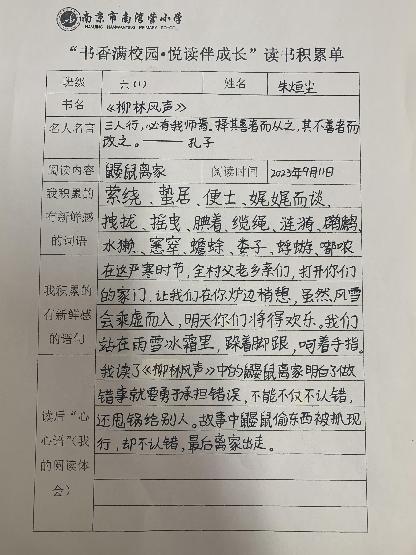 南京市南湾营小学
NANJING NANWANYING PRIMARY SCHOOL
“书香满校园·悦读伴成长”读书积累单
班级 六(1) 姓名 朱烜尘
书名 《柳林风声》
名人名言 三人行,必有我师焉。择其善者而从之,其不善者而
改之。——孔子
阅读内容 鼹鼠离家 阅读时间 2023年9月11日
我积累的
有新鲜感
的词语
萦绕、蛰居、便士、娓娓而谈、
拽拢、摇曳、腆着、缆绳、涟漪、䴙䴘、
水獭、窸窣、蟾蜍、娄子、蜉蝣、嘟哝
我积累的
有新鲜感
的语句
在这严寒时节,全村父老乡亲们,打开你们
的家门,让我们在你炉边稍憩,虽然风雪
会乘虚而入,明天你们将得欢乐。我们
站在雨雪冰霜里,跺着脚跟,呵着手指。
读后“心
心语”(我
的阅读体
会)
我读了《柳林风声》中的鼹鼠离家明白了做
错事就要勇于承担错误,不能不仅不认错,
还甩锅给别人。故事中鼹鼠偷东西被抓现
行,却不认错,最后离家出走。